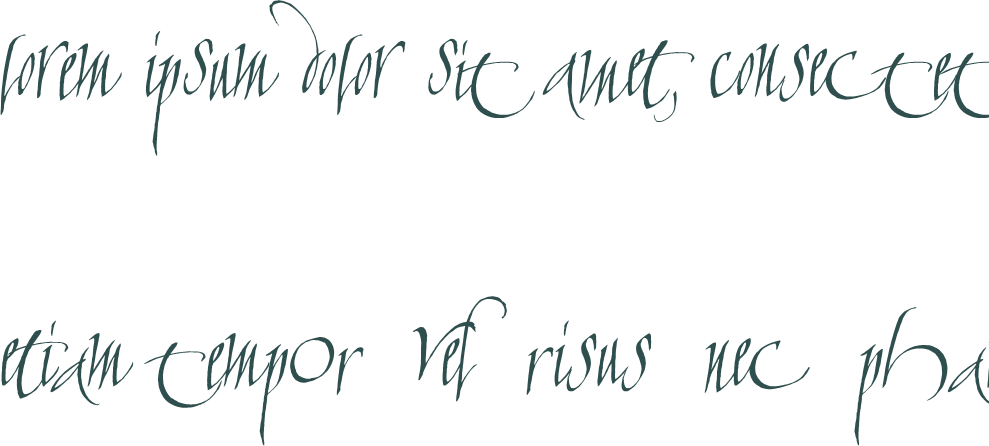 lorem ipsum dolor sit amet, consectet
etiam tempor vel risus nec pha